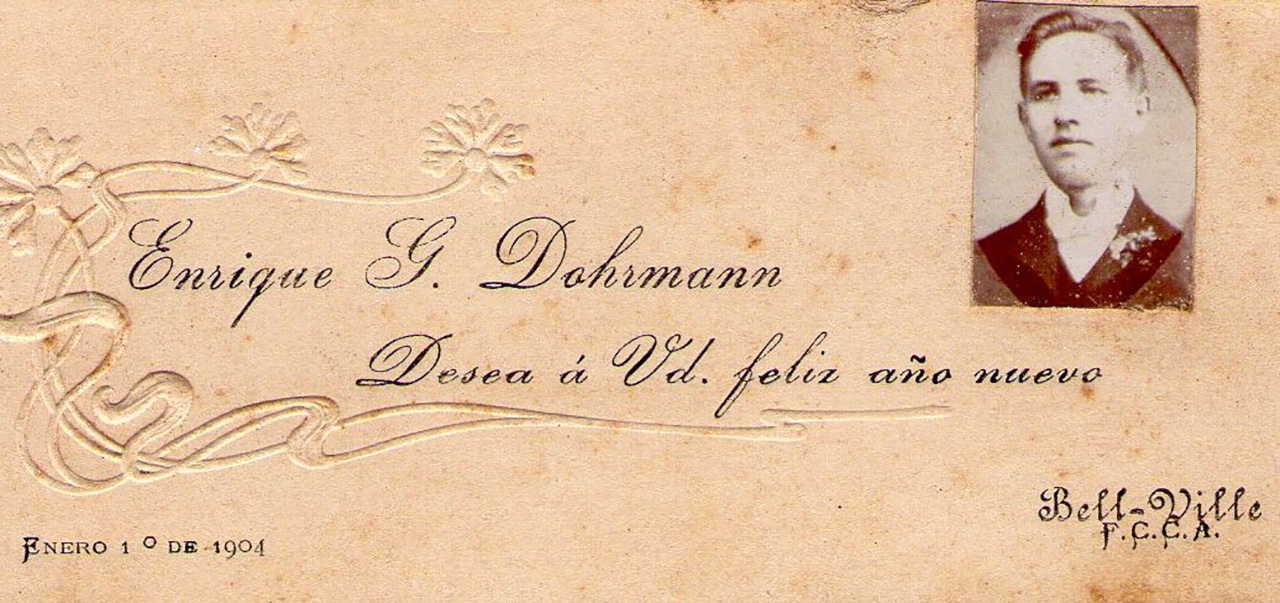 Enrique G. Dohrmann
Desea á Vd. feliz año nuevo
Bell-Ville
F.C.C.A.
ENERO 1º DE 1904